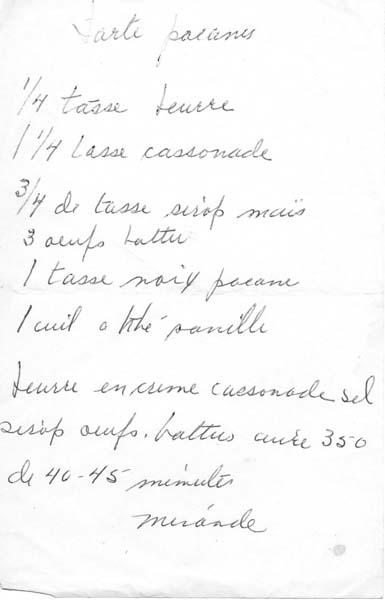 Tarte pacanes
1/4 tasse beurre
1 1/4 tasse cassonade
3/4 de tasse sirop maïs
3 oeufs battu
1 tasse noix pacane
1 cuil a thé vanille
beurre en creme cassonade sel
sirop oeufs. battus cuire 350
de 40-45 minutes